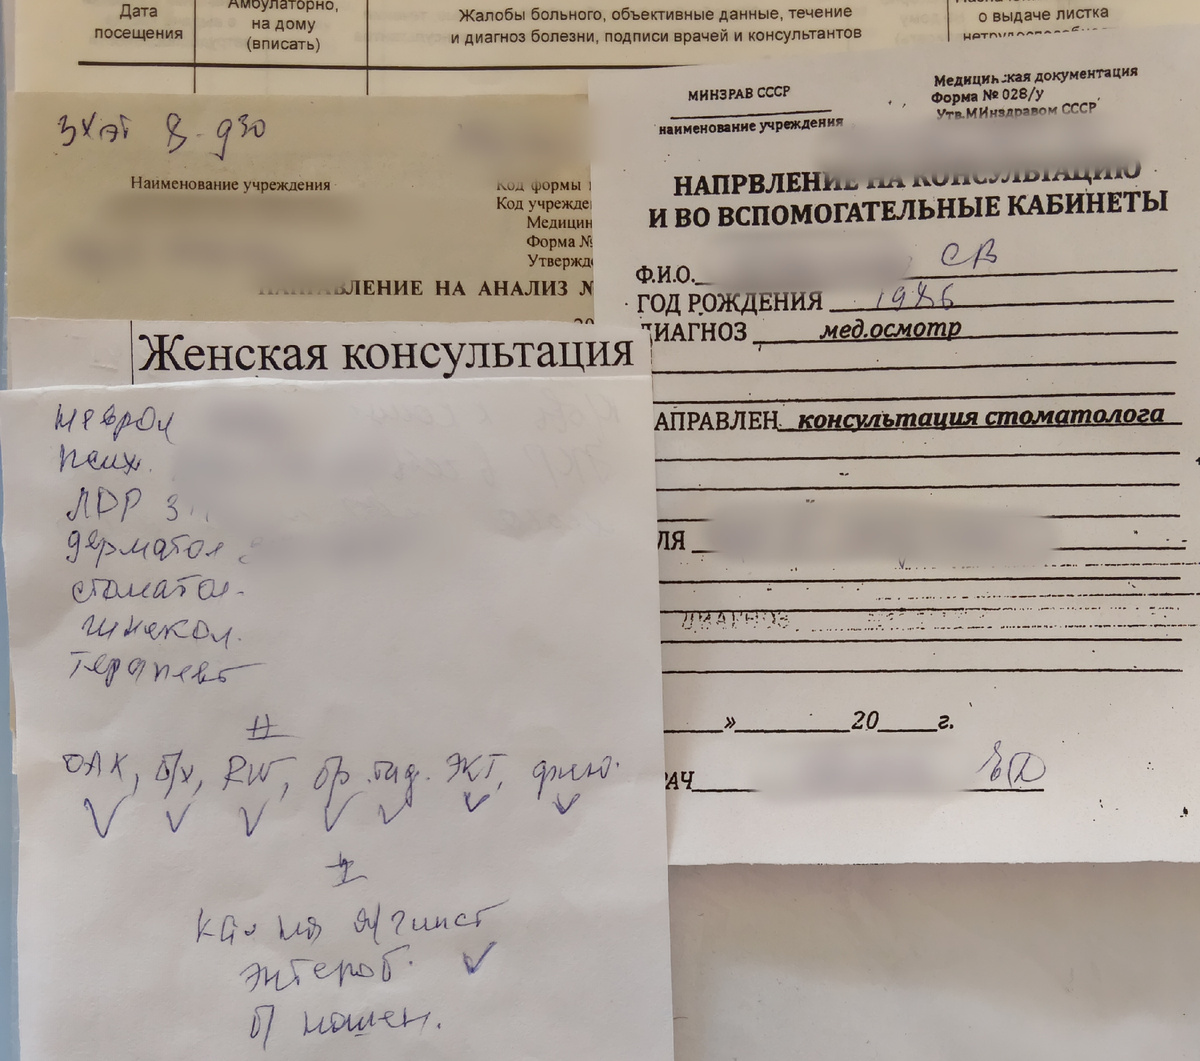 Дата
посещения
Амбулаторно,
на дому
(вписать)
Жалобы больного, объективные данные, течение
и диагноз болезни, подписи врачей и консультантов
о выдаче листка
нетрудоспособн
8-930
Наименование учреждения
Код формы
Код учрежде
Медицин
Форма №
Утвержде
НАПРАВЛЕНИЕ НА АНАЛИЗ №
20
МИНЗРАВ СССР
наименование учреждения
Медицинская документация
Форма № 028/у
Утв.МИнздравом СССР
НАПРВЛЕНИЕ НА КОНСУЛЬТАЦИЮ
И ВО ВСПОМОГАТЕЛЬНЫЕ КАБИНЕТЫ
Ф.И.О. СВ
ГОД РОЖДЕНИЯ 1986
ДИАГНОЗ мед.осмотр
АПРАВЛЕН консультация стоматолога
ЛЯ
ДИАГНОЗ
» 20 г.
РАЧ
Женская консультация
неврол
псих.
ЛОР
дерматол
стоматол.
гинекол.
терапевт
+
ОАК, б/х, RW, бр.тиф. ЭКГ, флюо.
+
кал на я/глист
энтероб.
б/ носит.